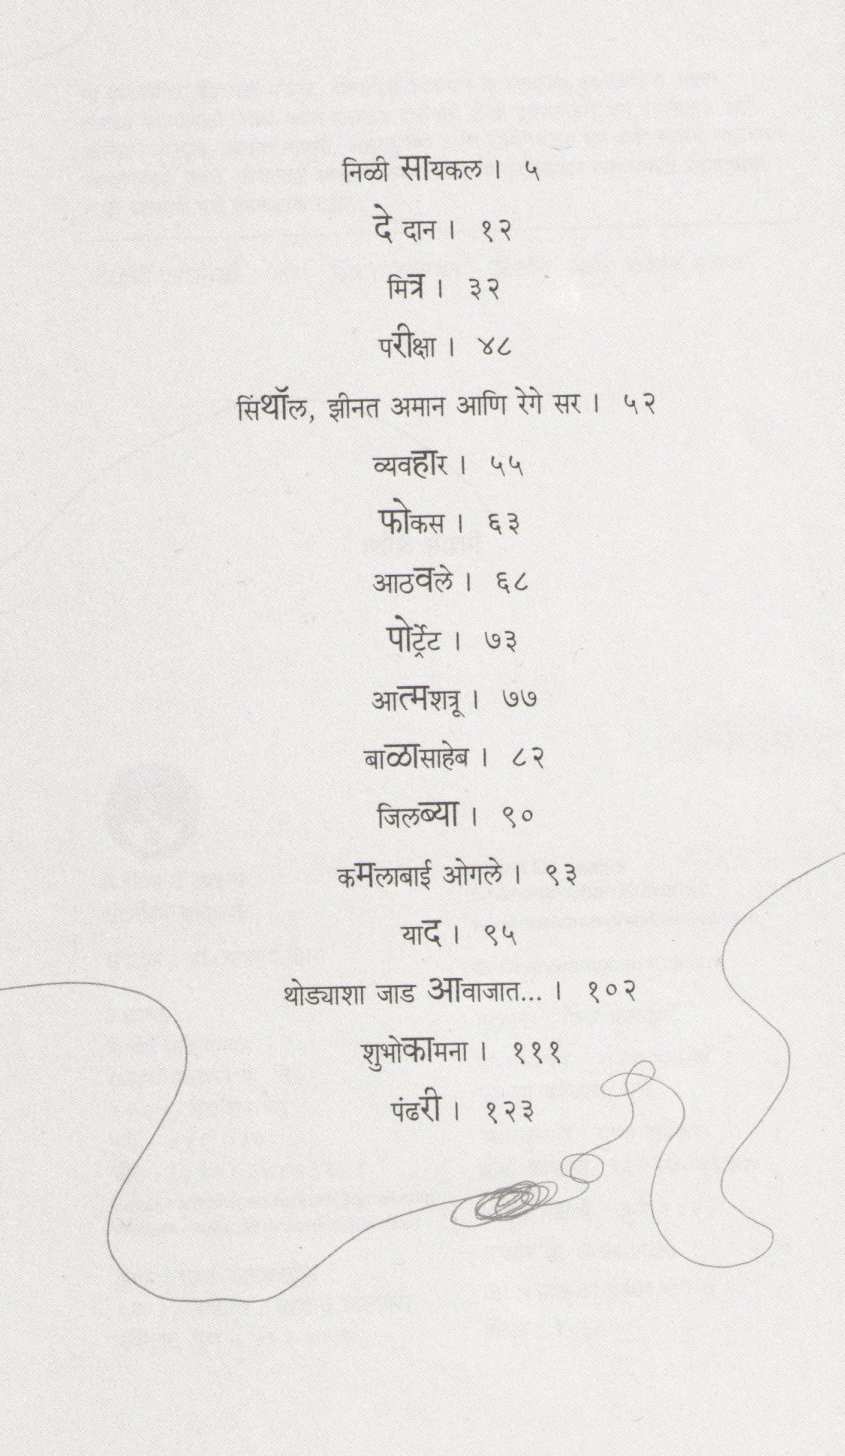 निळी सायकल । ५
दे दान । १२
मित्र । ३२
परीक्षा । ४८
सिंथॉल, झीनत अमान आणि रेगे सर । ५२
व्यवहार । ५५
फोकस । ६३
आठवले । ६८
पोर्ट्रेट । ७३
आत्मशत्रू । ७७
बाळासाहेब । ८२
जिलब्या । ९०
कमलाबाई ओगले । ९३
याद । ९५
थोड्याशा जाड आवाजात... । १०२
शुभोकामना । १११
पंढरी । १२३